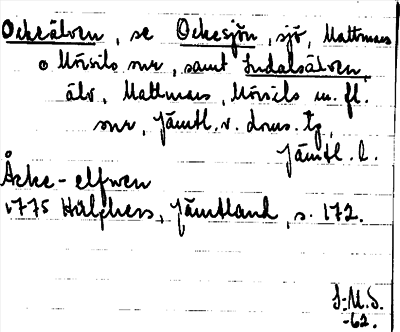 Ockeälven, se Ockesjön, sjö, Mattmars
o Mörsils snr, samt Indalsälven,
älv, Mattmars, Mörsils m. fl.
snr, Jämtl. v. doms. tg,
Jämtl. l.
Åcke-elfwen
1775 Hülphers, Jämtland, s. 172.
S.M.S.
-62.